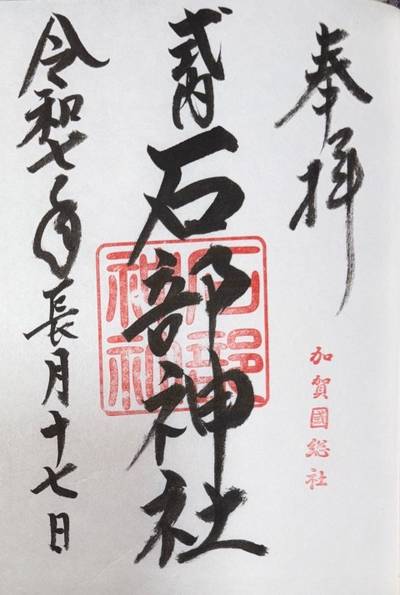 奉拝
加賀國総社
式内
石部神社
石部神社
令和七年長月十七日